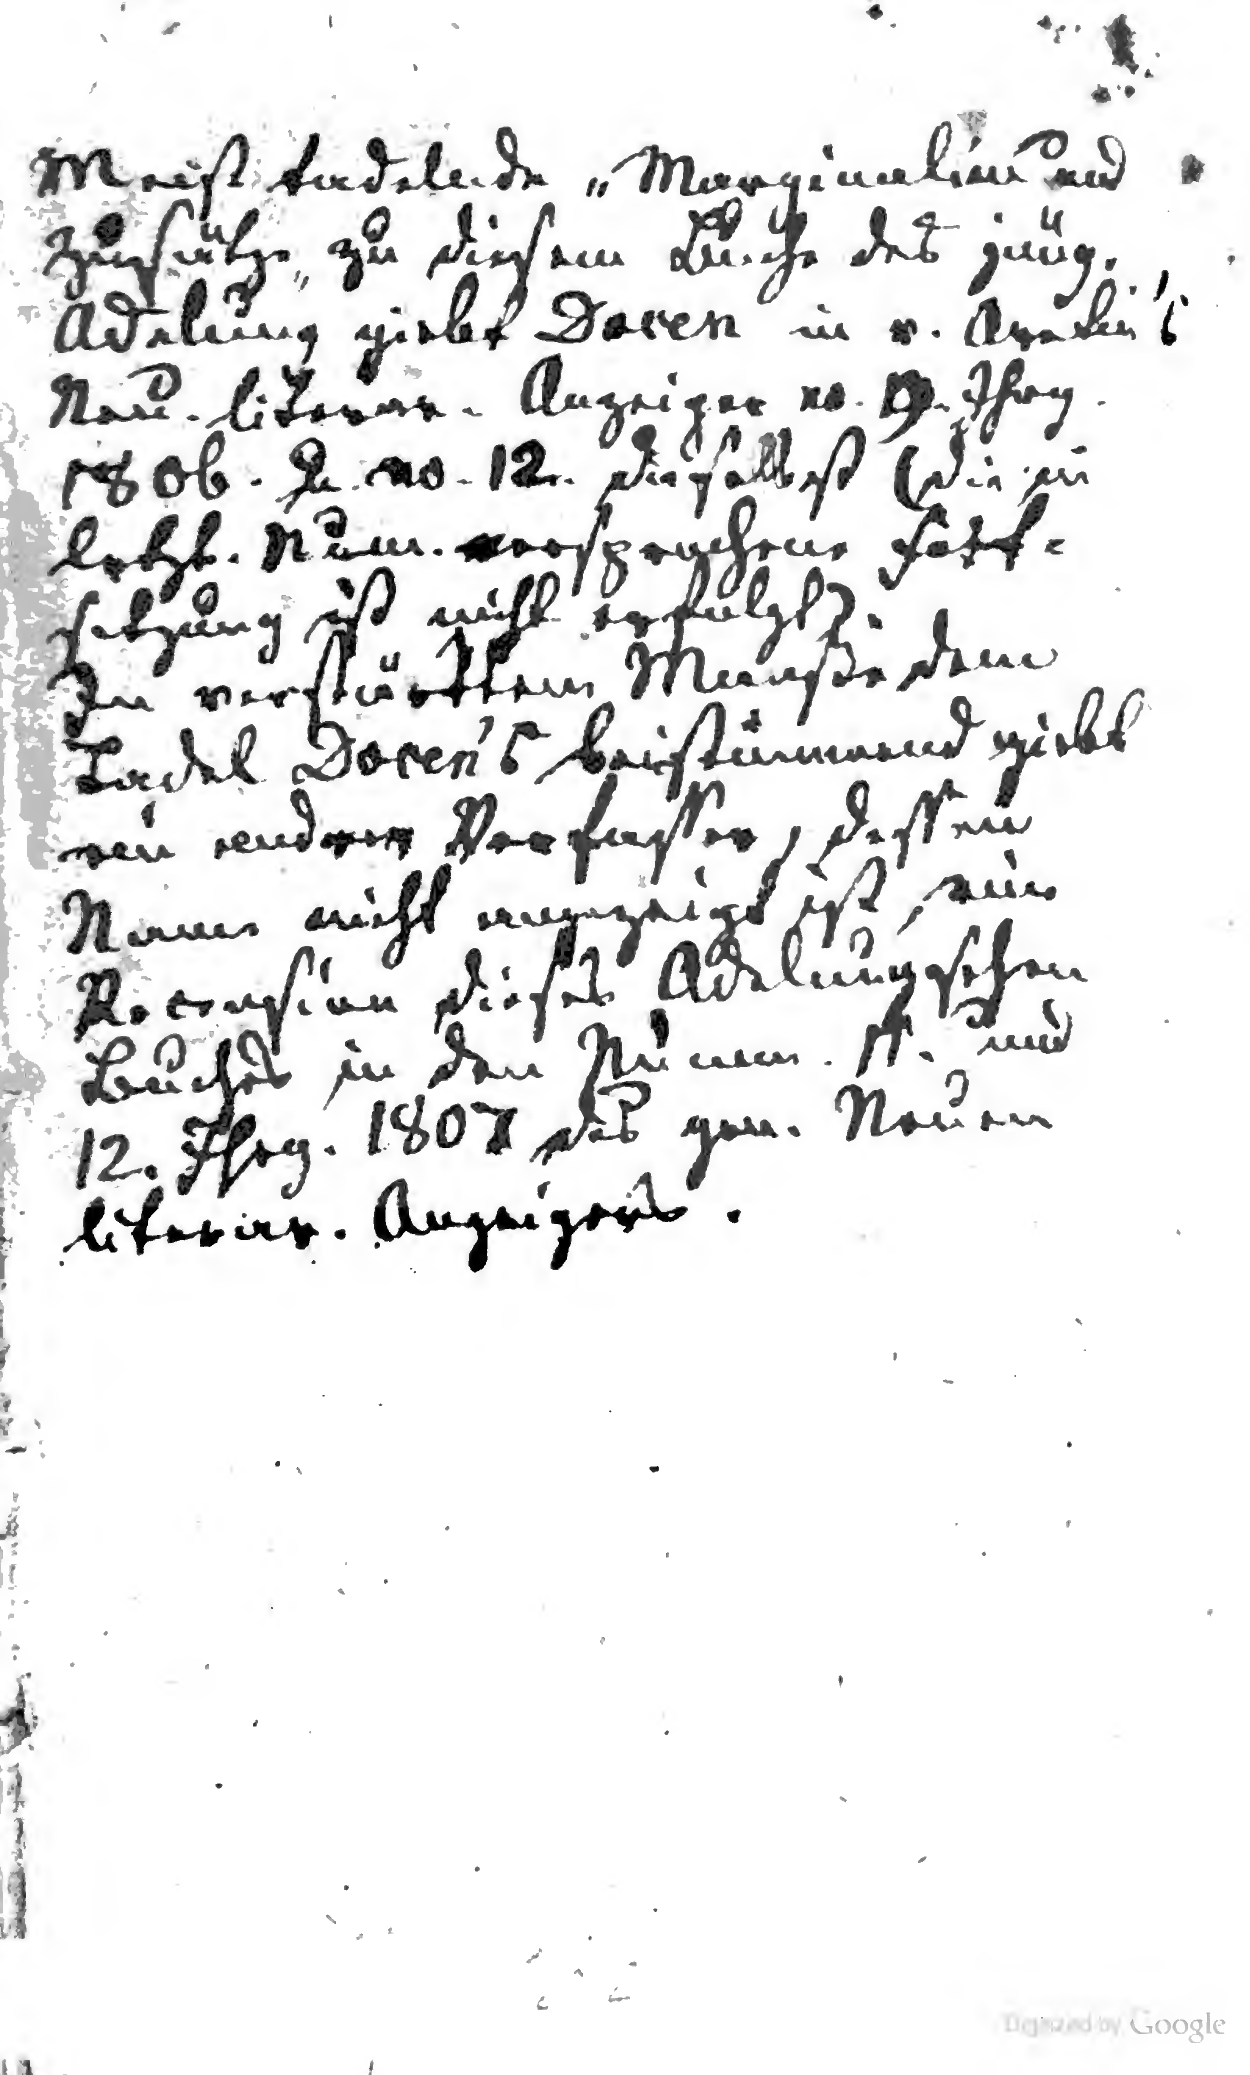 Meist tadelnde „Marginalien und
Zusätze„ zu diesem Buche des jüng.
Adelung giebt Docen in v. Aretin's
Neu. literar. Anzeiger no. 9. Jhrg.
1806. u. no. 12. dieselbst (die in
letzt. Num. versprochene Fort-
setzung ist nicht erfolgt).
In verstärktem Maaße dem
Tadel Docen's beistimmend giebt
ein andrer Verfasser, dessen
Name nicht angezeigt ist, eine
Recension dieses Adelungschen
Buches in den Numm. 11. und
12. Jhrg. 1807 des gen. Neuen
literar. Anzeigers.
Digitized by Google